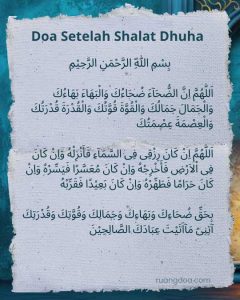 Doa Setelah Shalat Dhuha
بِسْمِ اللّٰهِ الرَّحْمٰنِ الرَّحِيْمِ
اَللّٰهُمَّ اِنَّ الضُّحَآءَ ضُحَاءُكَ وَالْبَهَاءَ بَهَاءُكَ
وَالْجَمَالَ جَمَالُكَ وَالْقُوَّةَ قُوَّتُكَ وَالْقُدْرَةَ قُدْرَتُكَ
وَالْعِصْمَةَ عِصْمَتُكَ
اَللّٰهُمَّ اِنْ كَانَ رِزْقِى فِى السَّمَآءِ فَأَنْزِلْهُ وَاِنْ كَانَ
فِى اْلاَرْضِ فَأَخْرِجْهُ وَاِنْ كَانَ مُعَسَّرًا فَيَسِّرْهُ وَاِنْ
كَانَ حَرَامًا فَطَهِّرْهُ وَاِنْ كَانَ بَعِيْدًا فَقَرِّبْهُ
بِحَقِّ ضُحَاءِكَ وَبَهَاءِكَ وَجَمَالِكَ وَقُوَّتِكَ وَقُدْرَتِكَ
آتِنِىْ مَآاَتَيْتَ عِبَادَكَ الصَّالِحِيْنَ
ruangdoa.com